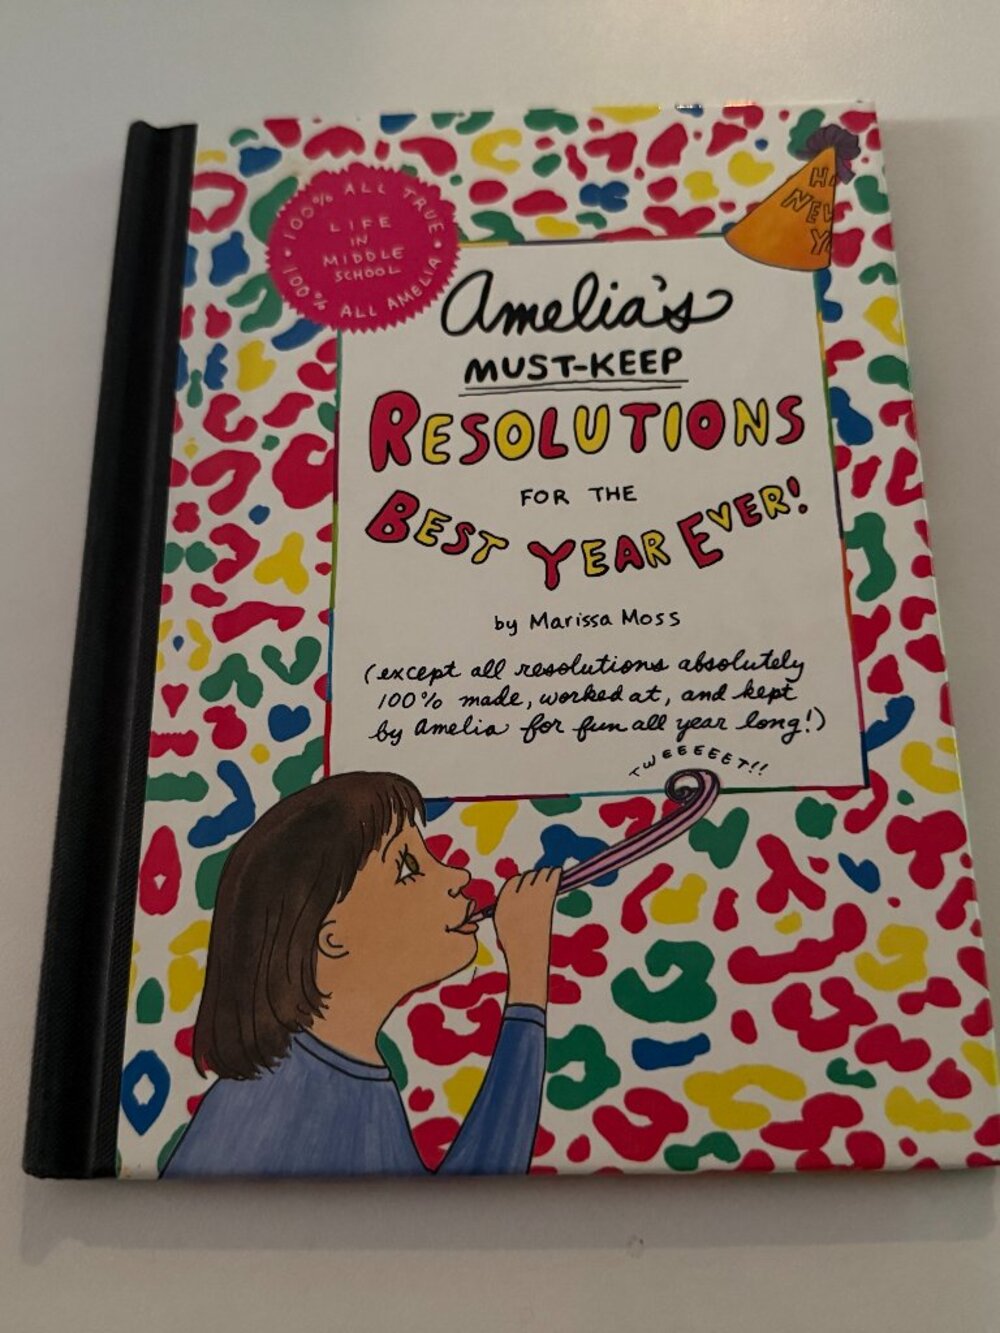 100% ALL TRUE
LIFE
IN
MIDDLE
SCHOOL
100% ALL AMELIA
NEW
Amelia's
MUST-KEEP
RESOLUTIONS
FOR THE
BEST YEAR EVER!
by Marissa Moss
(except all resolutions absolutely
100% made, worked at, and kept
by Amelia for fun all year long!)
TWEEEEEET!!